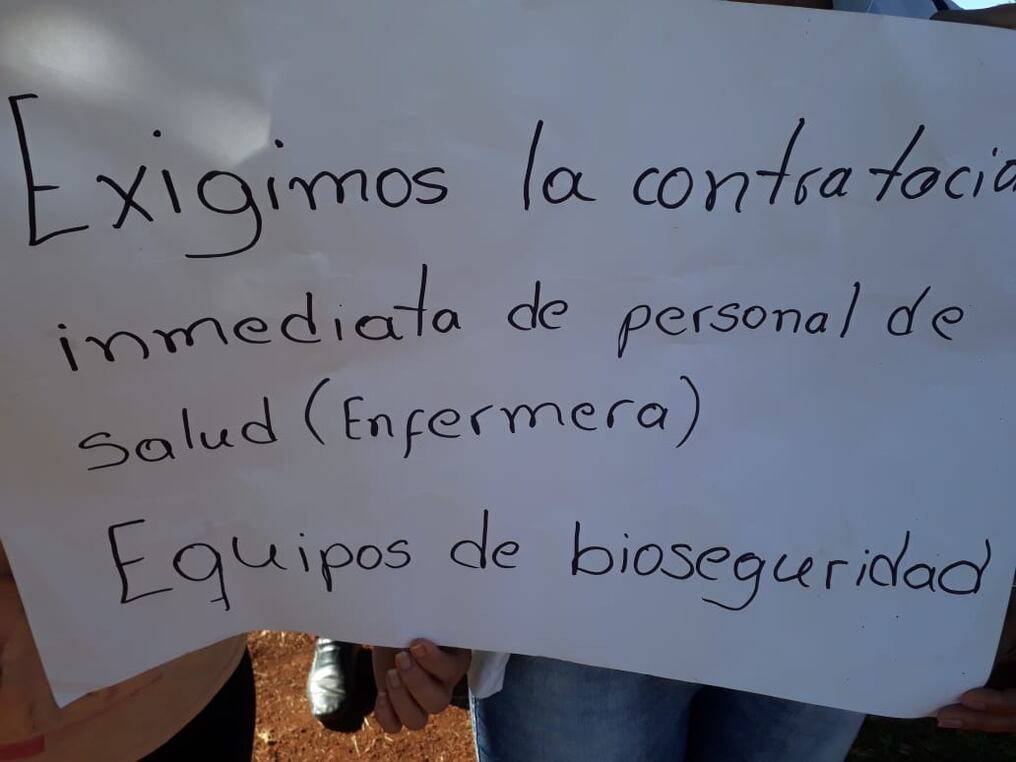 Exigimos la contratacio
inmediata de personal de
salud (Enfermera)
Equipos de bioseguridad